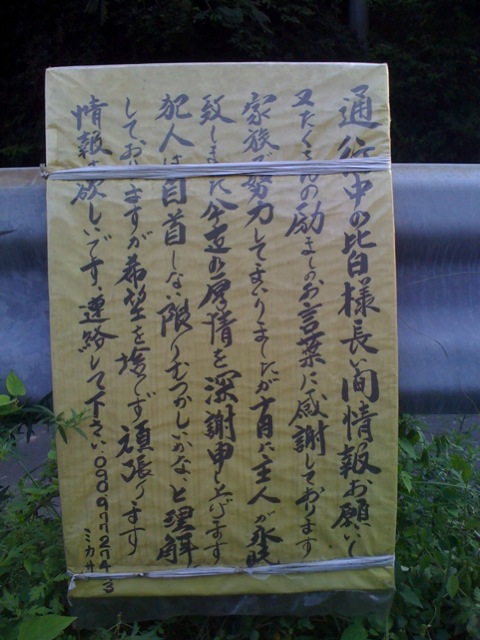 通行中の皆様長い間情報お願いし
又たくさんの励ましのお言葉に感謝しております
家族で努力してまいりましたが十月に主人が永眠
致しました今迄の厚情を深謝申し上げます
犯人は自首しない限りむつかしいかな、と理解
しておりますが希望を捨てず頑張ります
情報は欲しいです、連絡して下さい
ミカサ